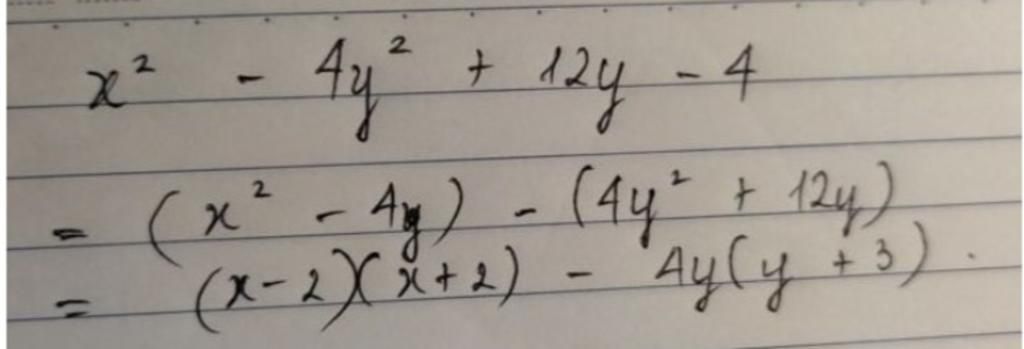 x² - 4y² + 12y - 4
= (x² - 4y) - (4y² + 12y)
= (x-2)(x+2) - 4y(y + 3).